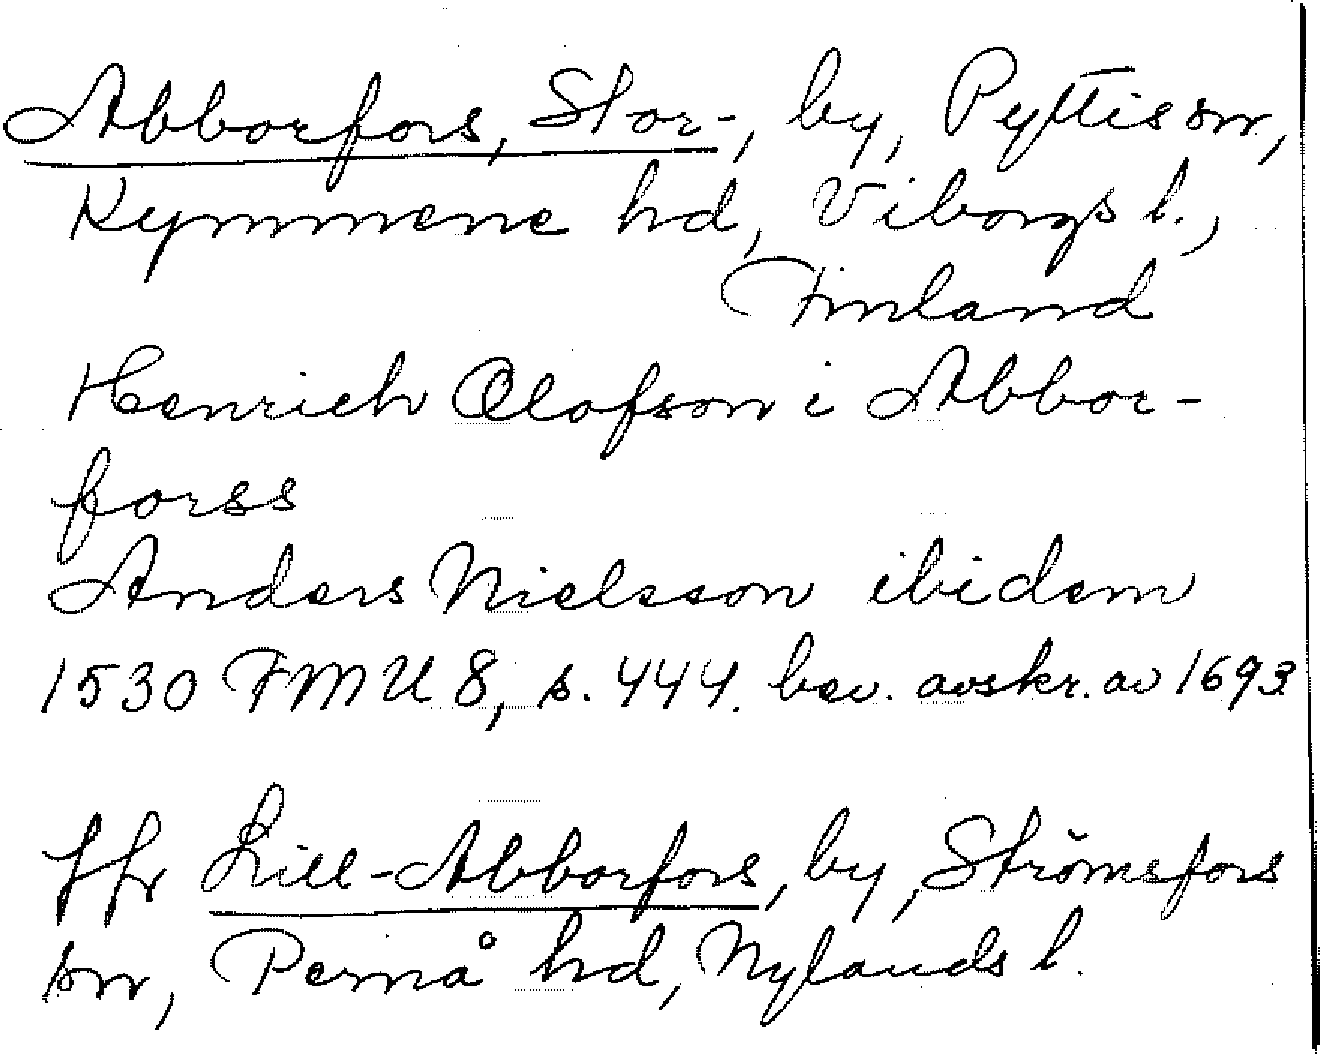 Abborfors, Stor-, by, Pyttis sn,
Kymmene hd, Viborgs l.,
Finland
Henrich Olofson i Abbor-
forss
Anders Nielsson ibidem
1530 FMU 8, s. 444. bev. avskr. av 1693
Jfr Lill-Abborfors, by, Strömsfors
sn, Pernå hd, Nylands l.